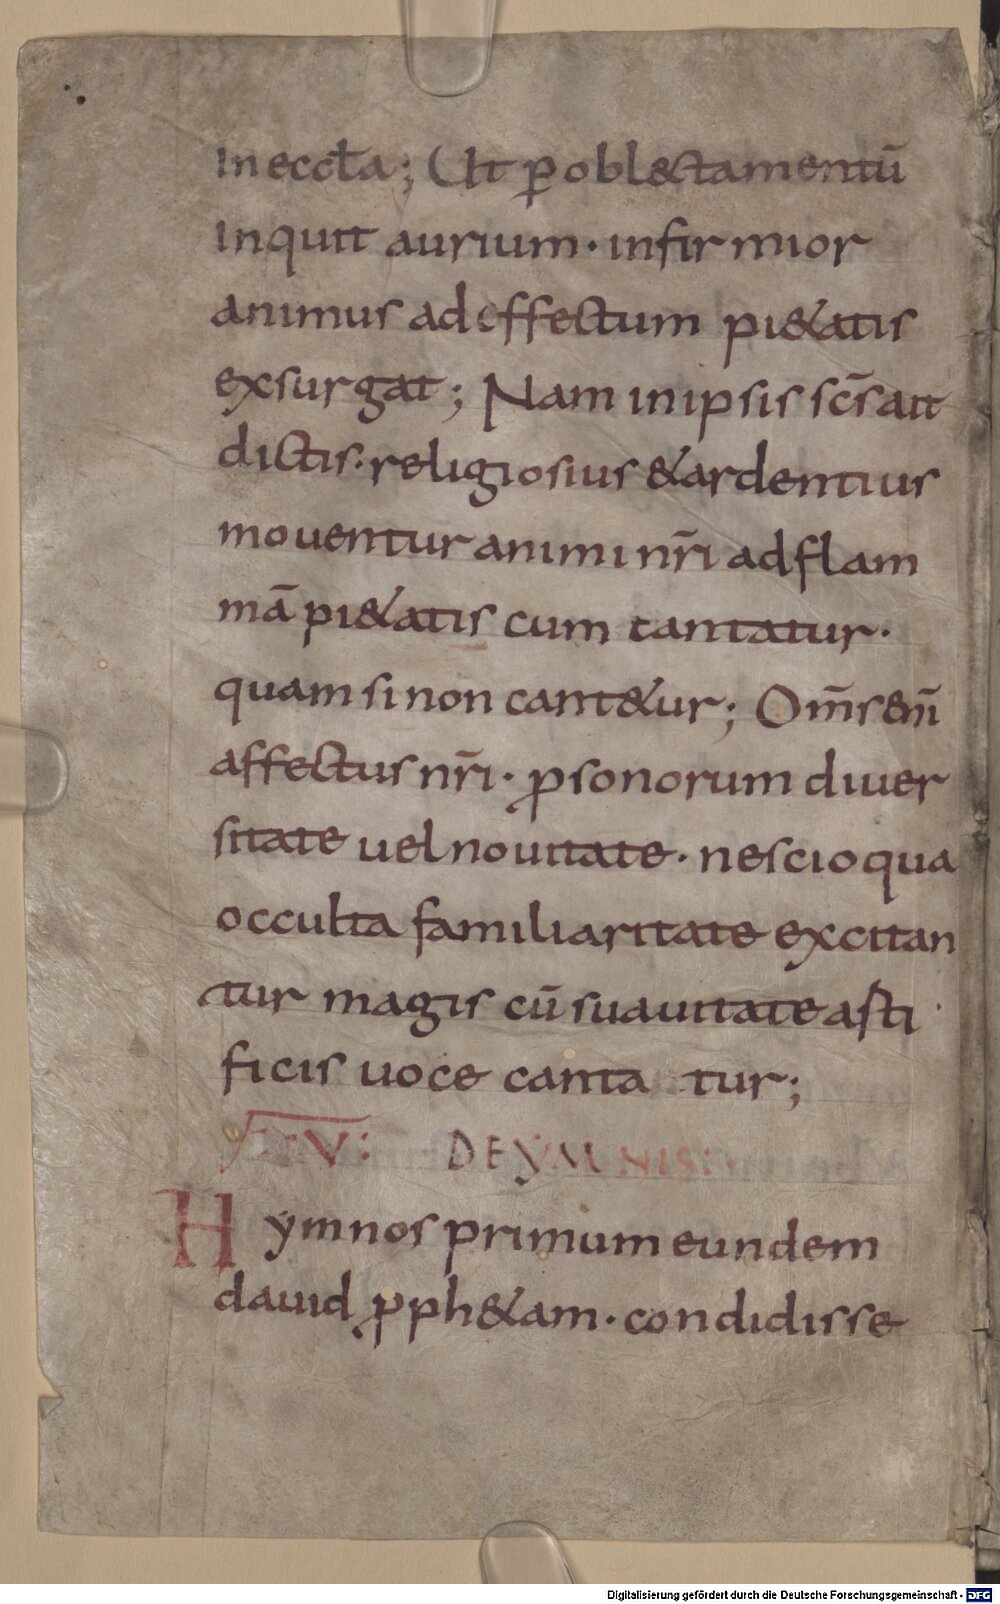 In eccła; Ut ꝑ obl&ctamentū
inquit aurium · infirmior
animus ad effectum pi&atis
exsurgat; Nam in ipsis sc̄s ait
dictis · religiosius & ardentius
mouentur animi nr̄i ad flam
mā pi&atis cum cantatur ·
quam si non cant&ur; Om̄s eni̅
affectus nr̄i · ꝓ sonorum diuer
sitate uel nouitate · nescio qua
occulta familiaritate excitan
tur magis cū suauitate asti
ficis uoce canta tur;
V: DE YMNIS:
Hymnos primum eundem
dauid ꝓph&am · condidisse
Digitalisierung gefördert durch die Deutsche Forschungsgemeinschaft - DFG